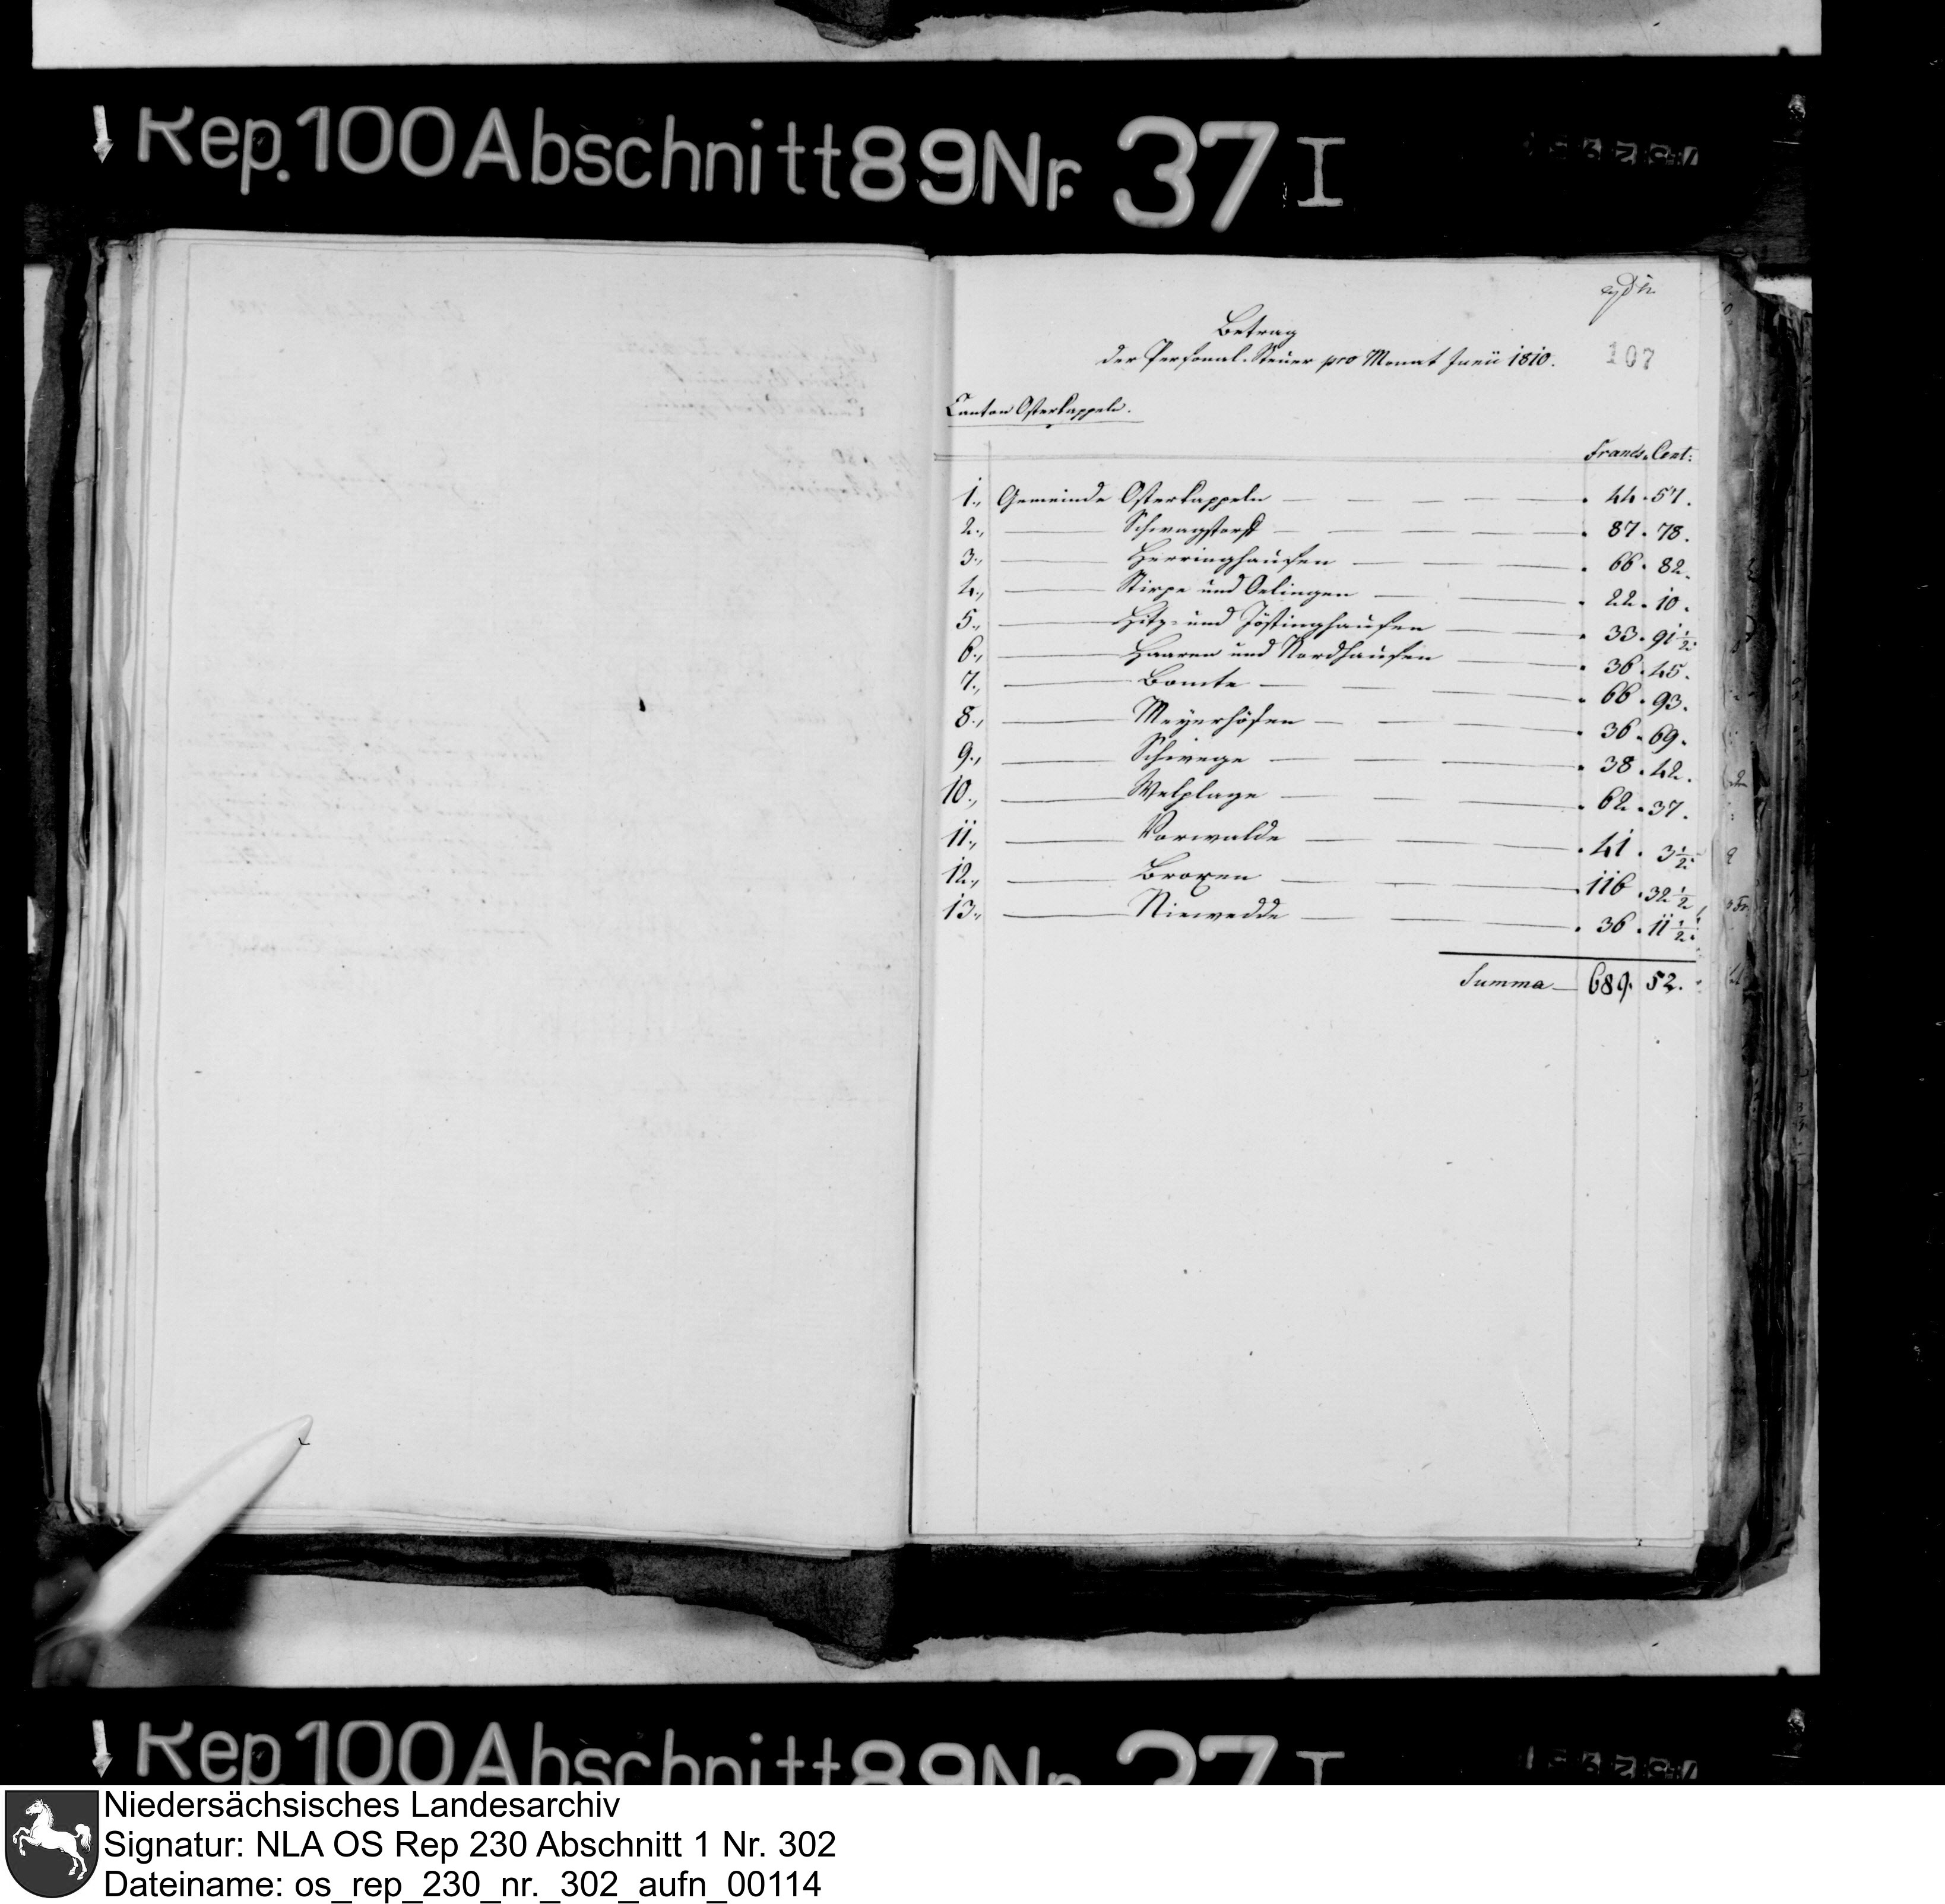 Rep. 100 Abschnitt 89 Nr. 37 I
Betrag
der Personal-Steuer pro Monat Junii 1810.
107
Canton Osterkappeln.
Francs. Cent:
1., Gemeinde Osterkappeln — — — 44. 57.
2., — Schwagstorf — — — 87. 78.
3., — Herringhausen — — — 66. 82.
4., — Stirpe und Oelingen — — 22. 10.
5., — Hitz- und Jöstinghausen — 33. 91 1/2.
6., — Haaren und Nordhausen — 36. 45.
7., — Bomte — — — 66. 93.
8., — Meyerhöfen — — — 36. 69.
9., — Schwege — — — 38. 42.
10., — Welplage — — — 62. 37.
11., — Vorwalde — — — 41. 3 1/2.
12., — Broxen — — — 116. 32 1/2
13., — Niewedde — — — 36. 11 1/2.
Summa — 689. 52.
Rep. 100 Abschnitt 89 Nr. 37 I
Niedersächsisches Landesarchiv
Signatur: NLA OS Rep 230 Abschnitt 1 Nr. 302
Dateiname: os_rep_230_nr._302_aufn_00114